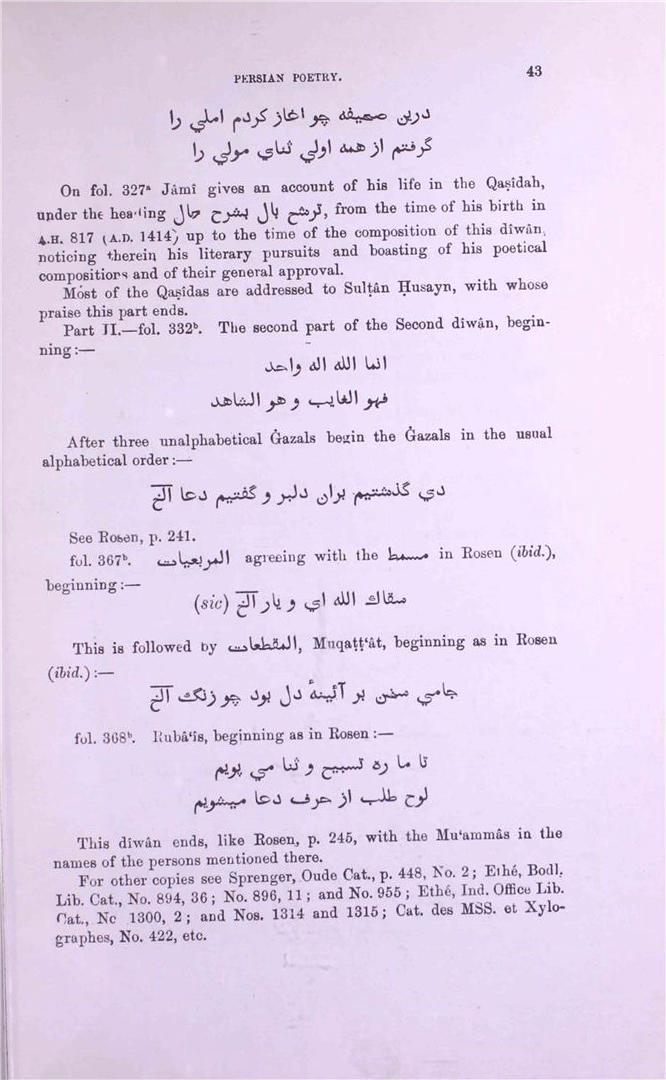 PERSIAN POETRY.
43
درين صحيفه چو اغاز کردم املي را
گرفتم از همه اولي ثناي مولي را
On fol. 327ᵃ Jâmî gives an account of his life in the Qaṣîdah,
under the heading ترشح بال بشرح حال, from the time of his birth in
A.H. 817 (A.D. 1414) up to the time of the composition of this dîwân,
noticing therein his literary pursuits and boasting of his poetical
compositions and of their general approval.
Most of the Qaṣîdas are addressed to Sulṭân Ḥusayn, with whose
praise this part ends.
Part II.—fol. 332ᵇ. The second part of the Second dîwân, begin-
ning:—
انما الله اله واحد
فهو الغايب و هو الشاهد
After three unalphabetical Ġazals begin the Ġazals in the usual
alphabetical order:—
دي گذشتيم بران دلبر و گفتيم دعا الخ
See Rosen, p. 241.
fol. 367ᵇ. المربعيات agreeing with the مسمط in Rosen (ibid.),
beginning:—
سقاك الله اي و يار الخ (sic)
This is followed by المقطعات, Muqaṭṭ‘ât, beginning as in Rosen
(ibid.):—
جامي سخن بر آئينهٔ دل بود چو زنگ الخ
fol. 368ᵇ. Rubâ‘îs, beginning as in Rosen:—
تا ما ره تسبيح و ثنا مي پويم
لوح طلب از حرف دعا ميشويم
This dîwân ends, like Rosen, p. 245, with the Mu‘ammâs in the
names of the persons mentioned there.
For other copies see Sprenger, Oude Cat., p. 448, No. 2; Ethé, Bodl.
Lib. Cat., No. 894, 36; No. 896, 11; and No. 955; Ethé, Ind. Office Lib.
Cat., No 1300, 2; and Nos. 1314 and 1315; Cat. des MSS. et Xylo-
graphes, No. 422, etc.